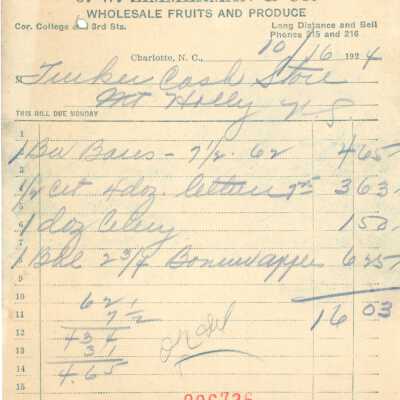 WHOLESALE FRUITS AND PRODUCE
Cor. College and 3rd Sts.
Long Distance and Bell
Phones 215 and 216
Charlotte, N. C., 10/16 1924
M Tucker Cash Store
Mt Holly N.C.
THIS BILL DUE MONDAY
1
2 1 Bu - 7 1/2. 62 4 65
3
4 1/2 crt 4 doz. lettuce 7 25 3 63
5
6 1 doz Celery 1 50
7
8 1 Bbl 2 3/4 6 25
9
10 62 16 03
11 7 1/2
12 434
13 31
14 4.65
15